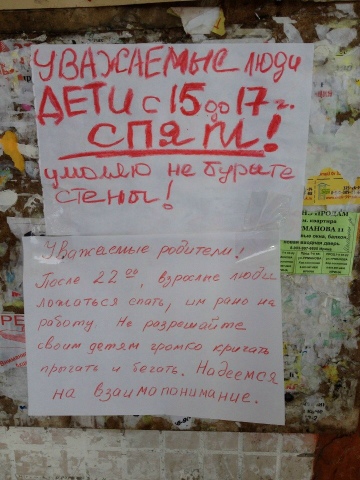 УВАЖАЕМЫЕ люди
ДЕТИ с 15 до 17 г.
СПЯТ!
умоляю не бурите
стены!
Уважаемые родители!
После 22 00, взрослые люди
ложаться спать, им рано на
работу. Не разрешайте
своим детям громко кричать
прыгать и бегать. Надеемся
на взаимапонимание.
ПРОДАМ
м. квартира
МАНОВА 11